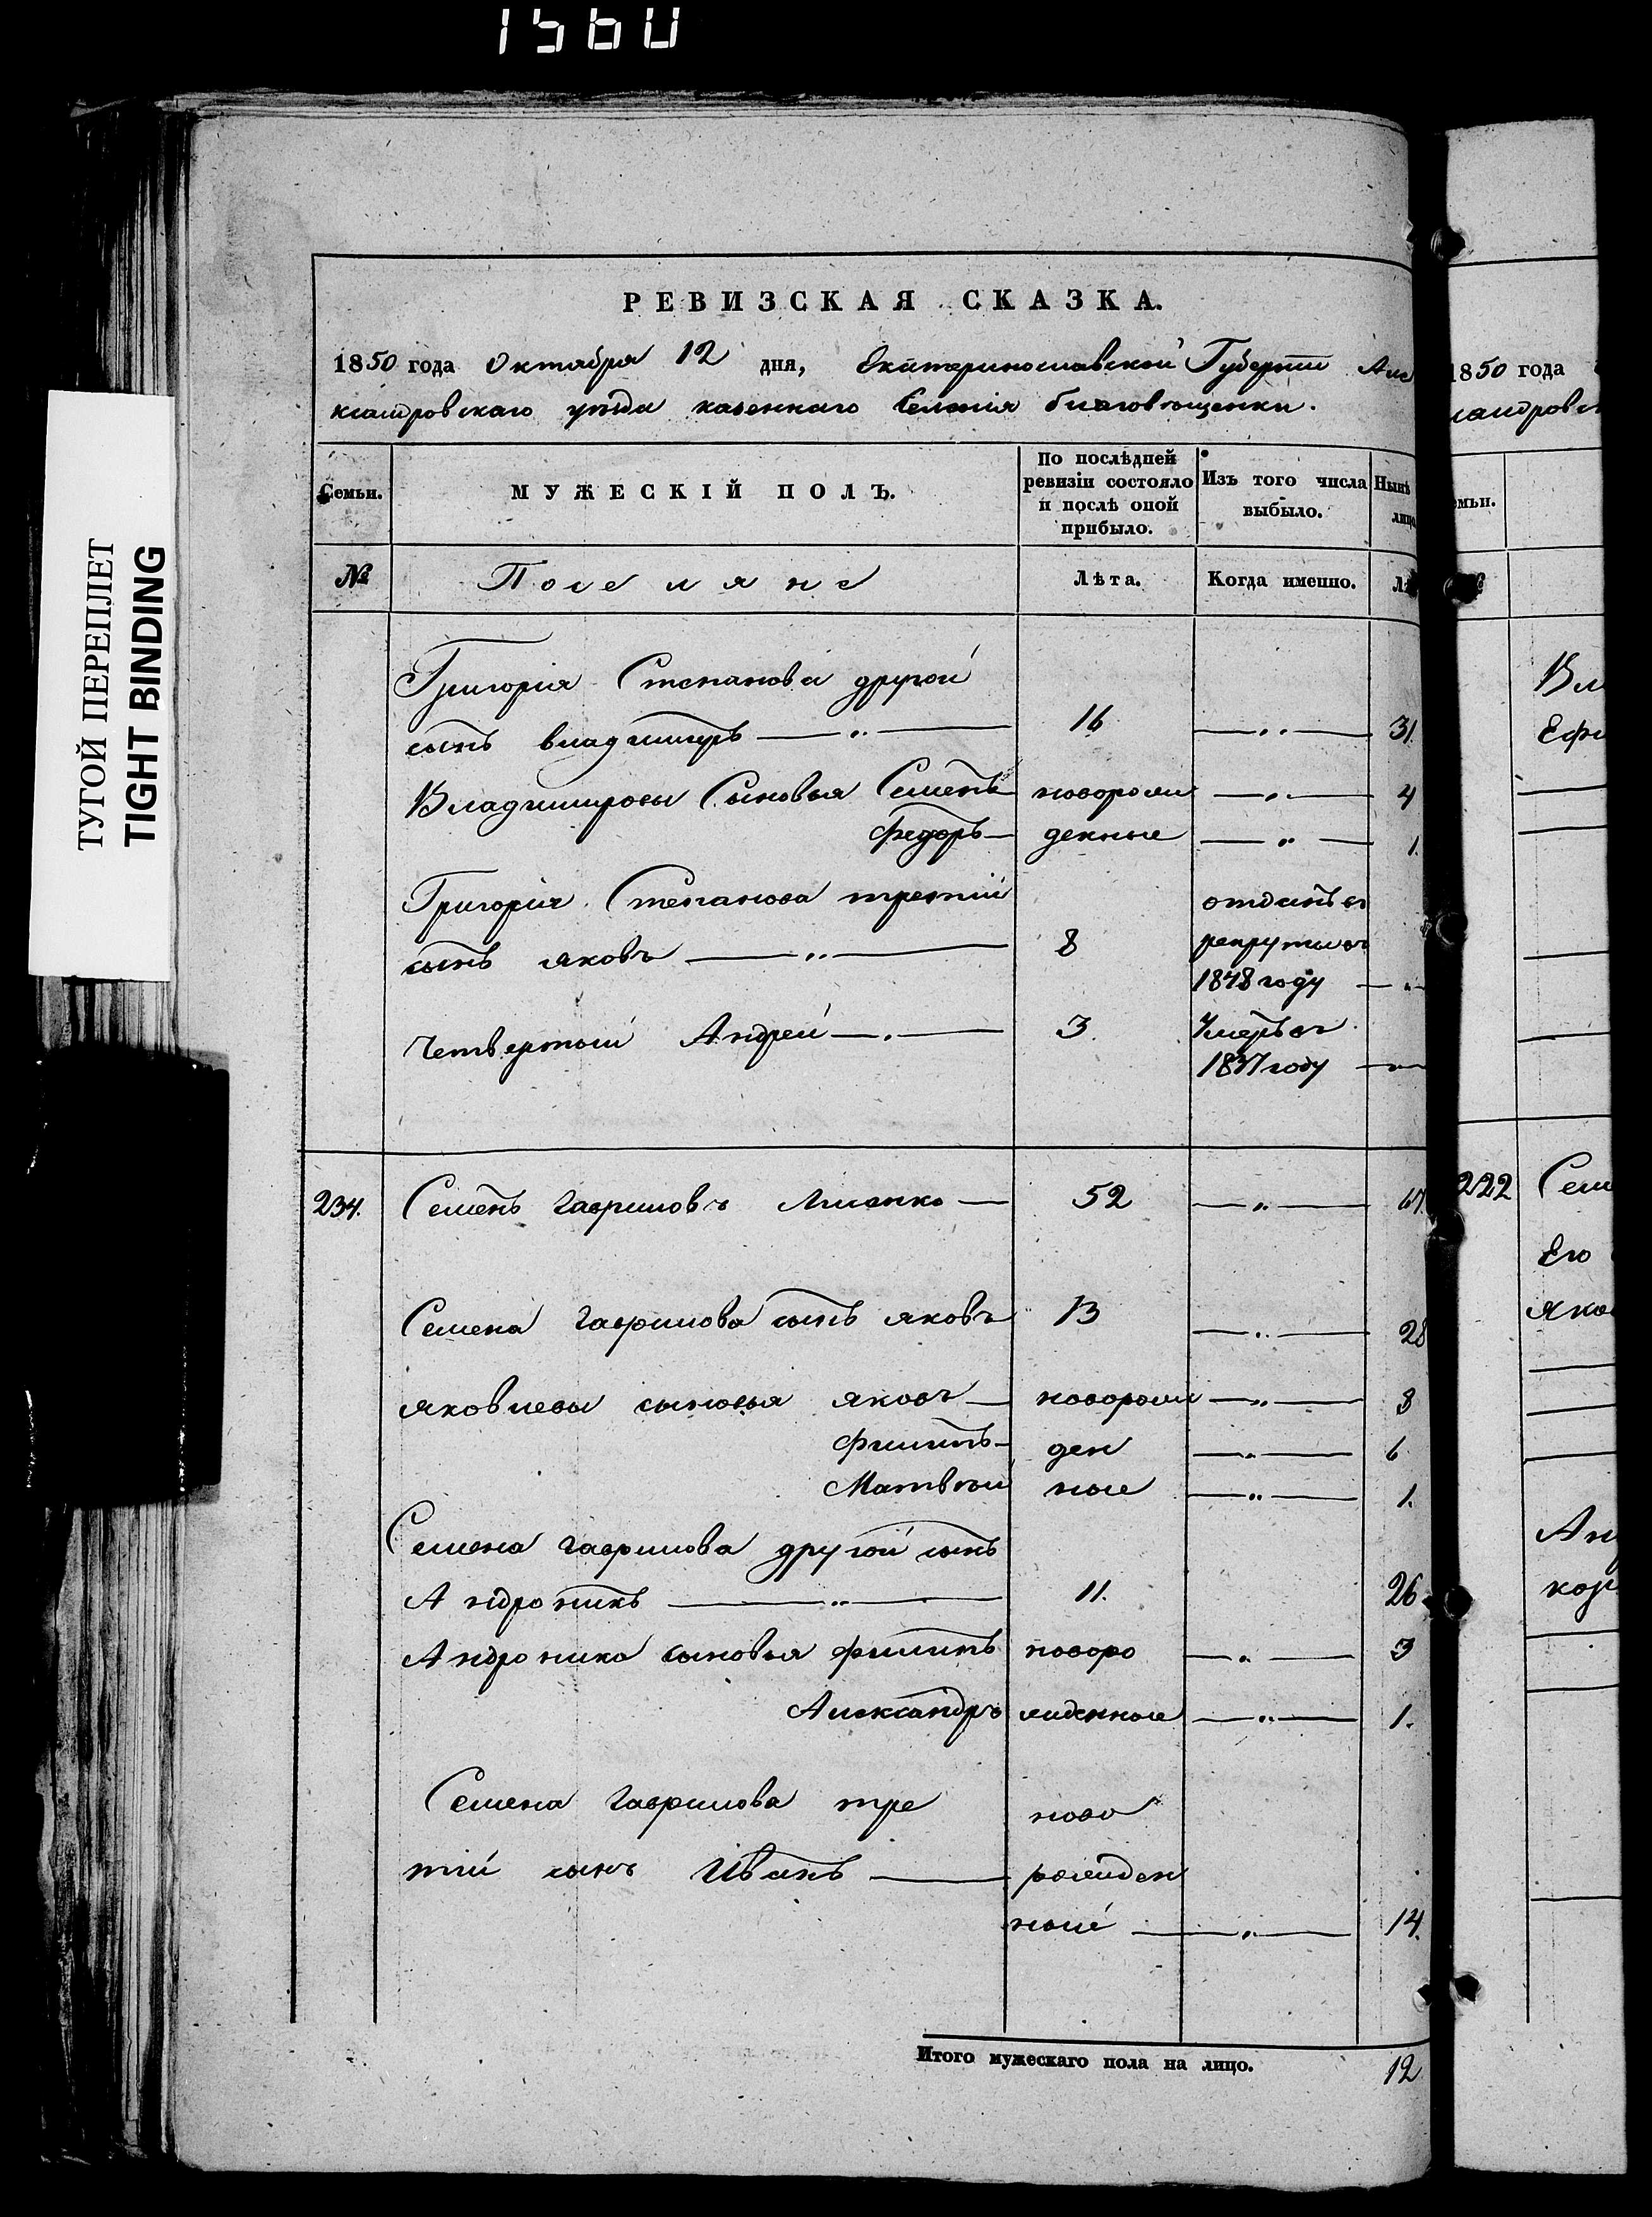 1560
ТУГОЙ ПЕРЕПЛЕТ
TIGHT BINDING
РЕВИЗСКАЯ СКАЗКА.
1850 года Октября 12 дня, Екатеринославской Губернии Але
ксандровскаго уѣзда казеннаго Селенія благовѣщенки.
Семьи. МУЖЕСКІЙ ПОЛЪ. По послѣдней ревизіи состояло и послѣ оной прибыло. Изъ того числа выбыло. Нынѣ лицо
№ Поселяне Лѣта. Когда именно. Лѣ
Григорія Степанова другой
сынъ владимиръ — „ — 16 — „ — 31.
Владимировы Сыновья Семенъ — новорож — „ — 4
Федоръ — денные — „ — 1.
Григорія Степанова третій отданъ въ
сынъ яковъ — „ — 8 рекруты въ
1848 году — „ —
Четвертый Андрей — „ — 3. Умеръ въ
1837 году — „ —
234. Семенъ гавриловъ Лисенко — 52 — „ — 67.
Семена гаврилова сынъ яковъ 13 — „ — 28
яковлевы сыновья яковъ — новорож — „ — 8
филипъ — ден — „ — 6
Матвѣй ные — „ — 1.
Семена гаврилова другой сынъ
Андроникъ — „ — 11. 26
Андроника сыновья филипъ новоро — „ — 3
Александръ жденные — „ — 1.
Семена гаврилова тре ново
тій сынъ Иванъ — рожден
ный — „ — 14.
Итого мужескаго пола на лицо. 12
1850 года
ландровск
емьи.
Вл
Ефи
222 Сем
Его
яков
Ан